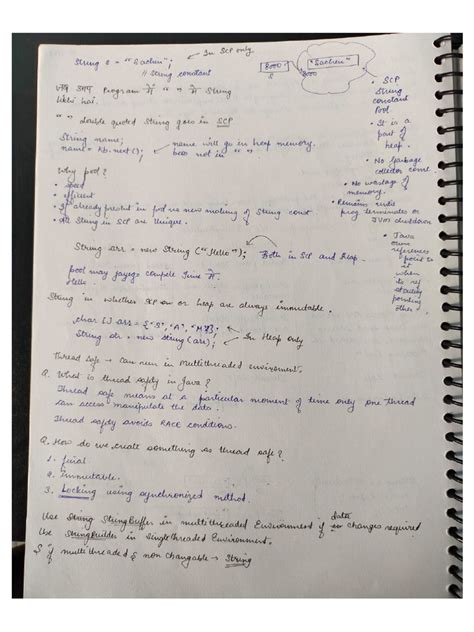 String s = "Sachin"; ← In SCP only
// String constant
8000
s
"Sachin"
8000
जब हम Program में " " में String
likhi hai.
" " double quoted String goes in SCP
String name;
name = kb.next(); ← name will go in heap memory.
not in " "
Why pool?
• speed
• efficient
• If already present in pool no new making of String const
• All String in SCP are Unique.
• SCP
String
constant
Pool
• It is a
part of
heap.
• No garbage
collector comes.
• No wastage of
memory.
• Remains until
prog. terminates or
JVM shutdown
• Java
references
point to
at
when
to ref
starting
pointing
other.
String srr = new String("Hello"); Both in SCP and heap.
pool may jayega compile time में
Hello.
String in whether SCP or heap are always immutable.
char[] arr = {"S", "A", "M"};
String str = new string(arr); ← In Heap only
Thread Safe → Can run in Multithreaded environment.
Q. What is thread safety in Java?
Thread safe means at a particular moment of time only one thread
can access/manipulate the data.
Thread safety avoids RACE conditions.
Q. How do we create something as thread safe?
1. final
2. immutable.
3. Locking using synchronized method.
Use String StringBuffer in multithreaded Environment if data changes required
Use StringBuilder in singlethreaded Environment.
& if multithreaded & non changable → String